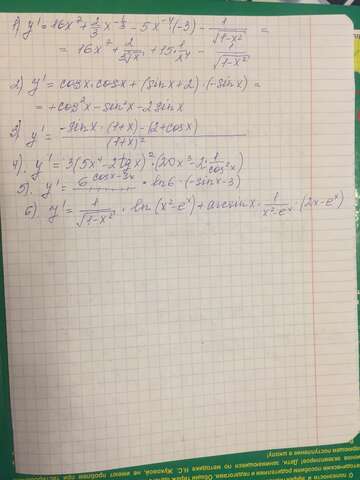 1) y' = 16x² + 2/3 x^(-1/3) - 5x⁻⁴(-3) - 1/√(1-x²) =
= 16x² + 2/(3∛x) + 15·1/x⁴ - 1/√(1-x²)
2) y' = cosx·cosx + (sinx+2)·(-sinx) =
= +cos²x - sin²x - 2sinx
3) y' = (-sinx·(1+x) - (2+cosx))/(1+x)²
4). y' = 3(5x⁴-2tgx)²·(20x³-2·1/cos²x)
5). y' = 6^(cosx-3x) · ln6·(-sinx-3)
6) y' = 1/√(1-x²) · ln(x²-eˣ) + arcsinx · 1/(x²-eˣ) · (2x-eˣ)